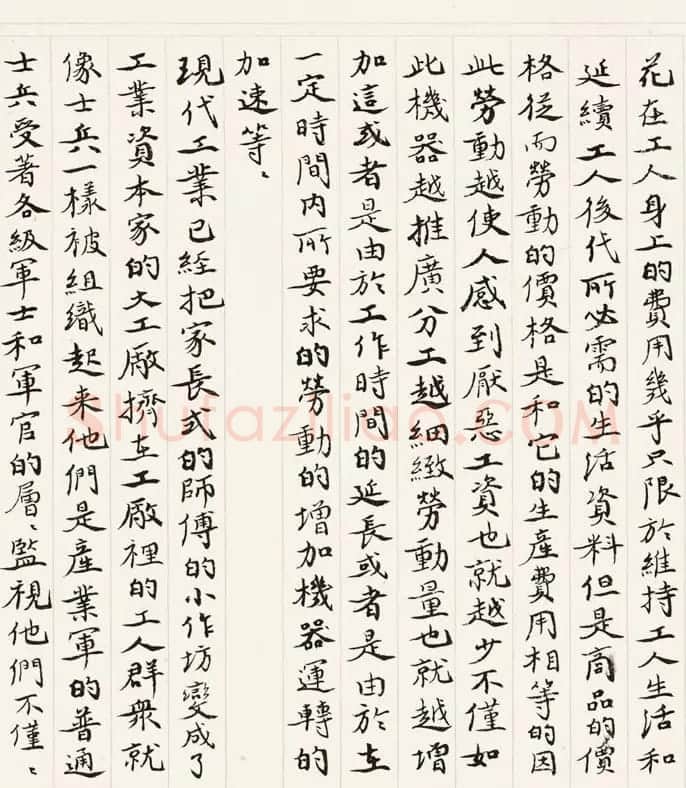 花在工人身上的費用幾乎只限於維持工人生活和
延續工人後代所必需的生活資料但是商品的價
格從而勞動的價格是和它的生產費用相等的因
此勞動越使人感到厭惡工資也就越少不僅如
此機器越推廣分工越細緻勞動量也就越增
加這或者是由於工作時間的延長或者是由於在
一定時間內所要求的勞動的增加機器運轉的
加速等、
現代工業已經把家長式的師傅的小作坊變成了
工業資本家的大工廠擠在工廠裡的工人群衆就
像士兵一樣被組織起來他們是產業軍的普通
士兵受著各級軍士和軍官的層、監視他們不僅、
Shufaziliao.COM